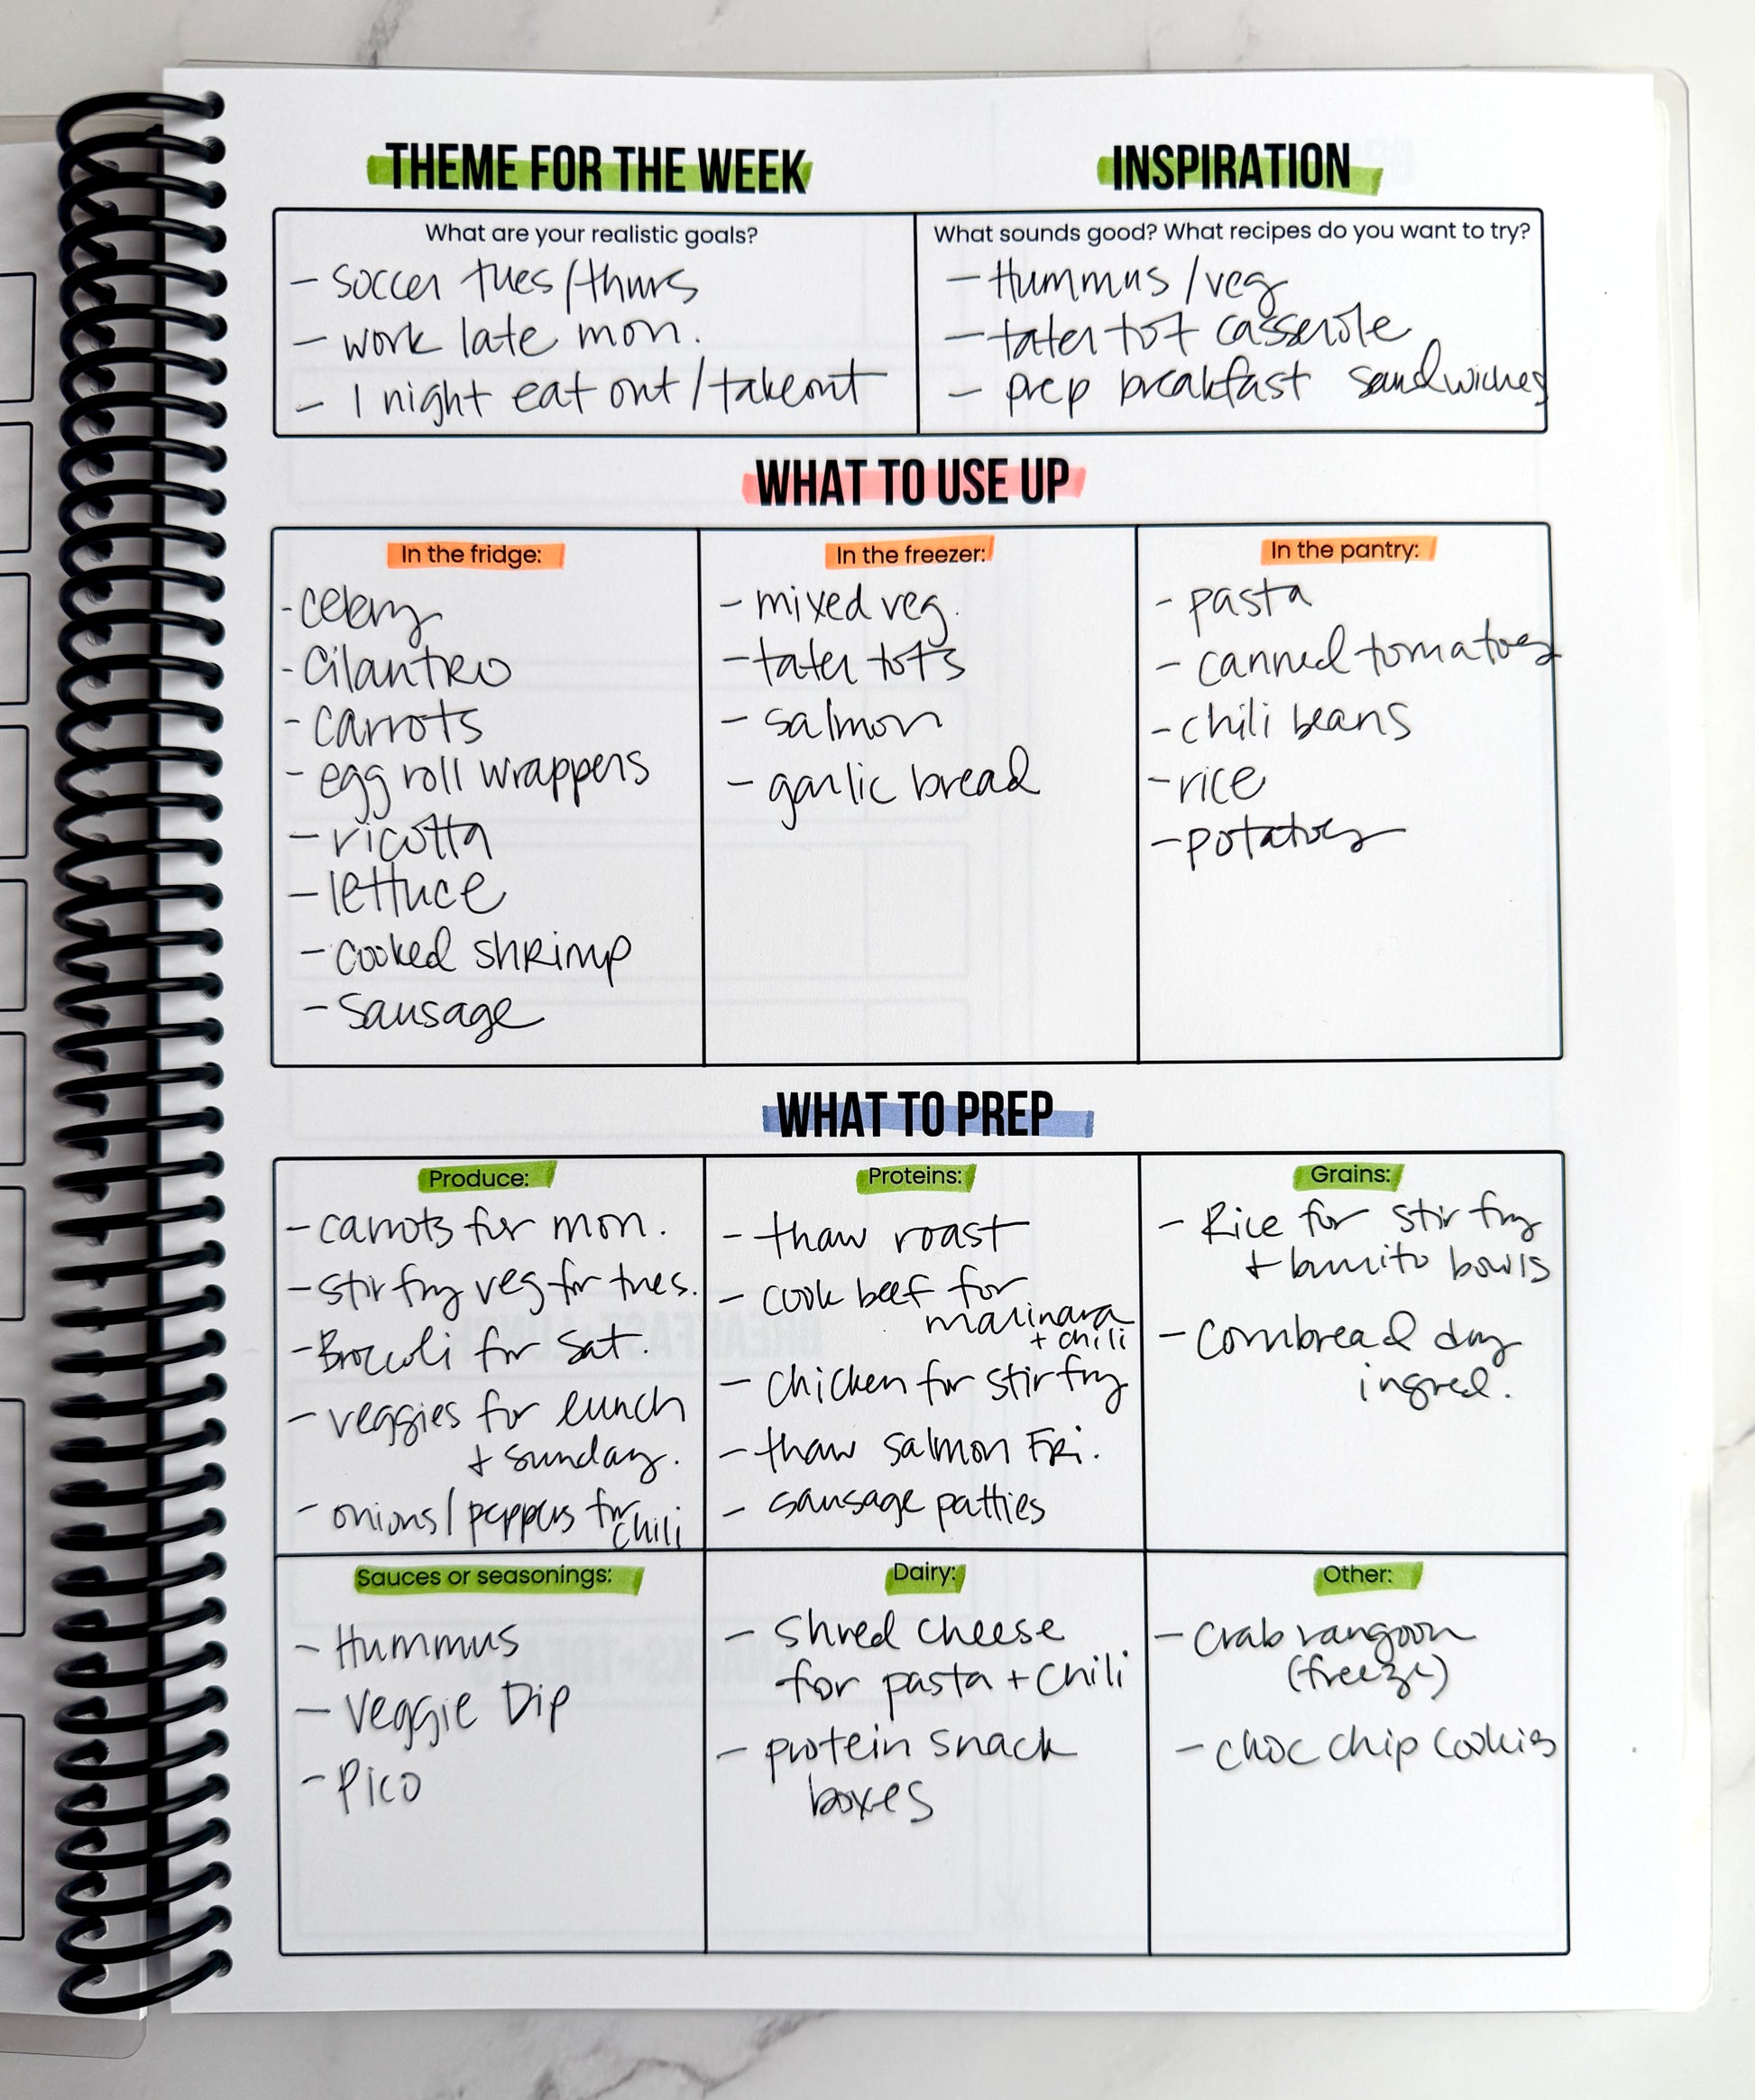 THEME FOR THE WEEK
What are your realistic goals?
- soccer tues/thurs
- work late mon.
- 1 night eat out/takeout
INSPIRATION
What sounds good? What recipes do you want to try?
- Hummus/veg
- tater tot casserole
- prep breakfast sandwiches
WHAT TO USE UP
In the fridge:
- celery
- cilantro
- carrots
- egg roll wrappers
- ricotta
- lettuce
- cooked shrimp
- Sausage
In the freezer:
- mixed veg.
- tater tots
- salmon
- garlic bread
In the pantry:
- pasta
- canned tomatoes
- chili beans
- rice
- potatoes
WHAT TO PREP
Produce:
- carrots for mon.
- stir fry veg for tues.
- Broccoli for Sat.
- veggies for lunch
+ sunday.
- onions/peppers for
chili
Proteins:
- thaw roast
- cook beef for
marinara
+ chili
- chicken for stir fry
- thaw salmon Fri.
- sausage patties
Grains:
- Rice for stir fry
+ burrito bowls
- Cornbread dry
ingred.
Sauces or seasonings:
- Hummus
- Veggie Dip
- Pico
Dairy:
- Shred cheese
for pasta + chili
- protein snack
boxes
Other:
- Crab rangoon
(freeze)
- choc chip cookies